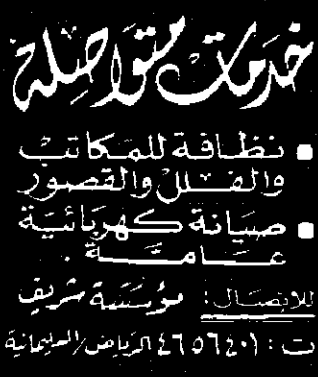 خدمات متواصلة
▪ نظافة للمكاتب
والفلل والقصور
▪ صيانة كهربائية
عامة .
للاتصال: مؤسسة شريف
ت : ٤٦٥٦٤٠١ الرياض/السليمانية